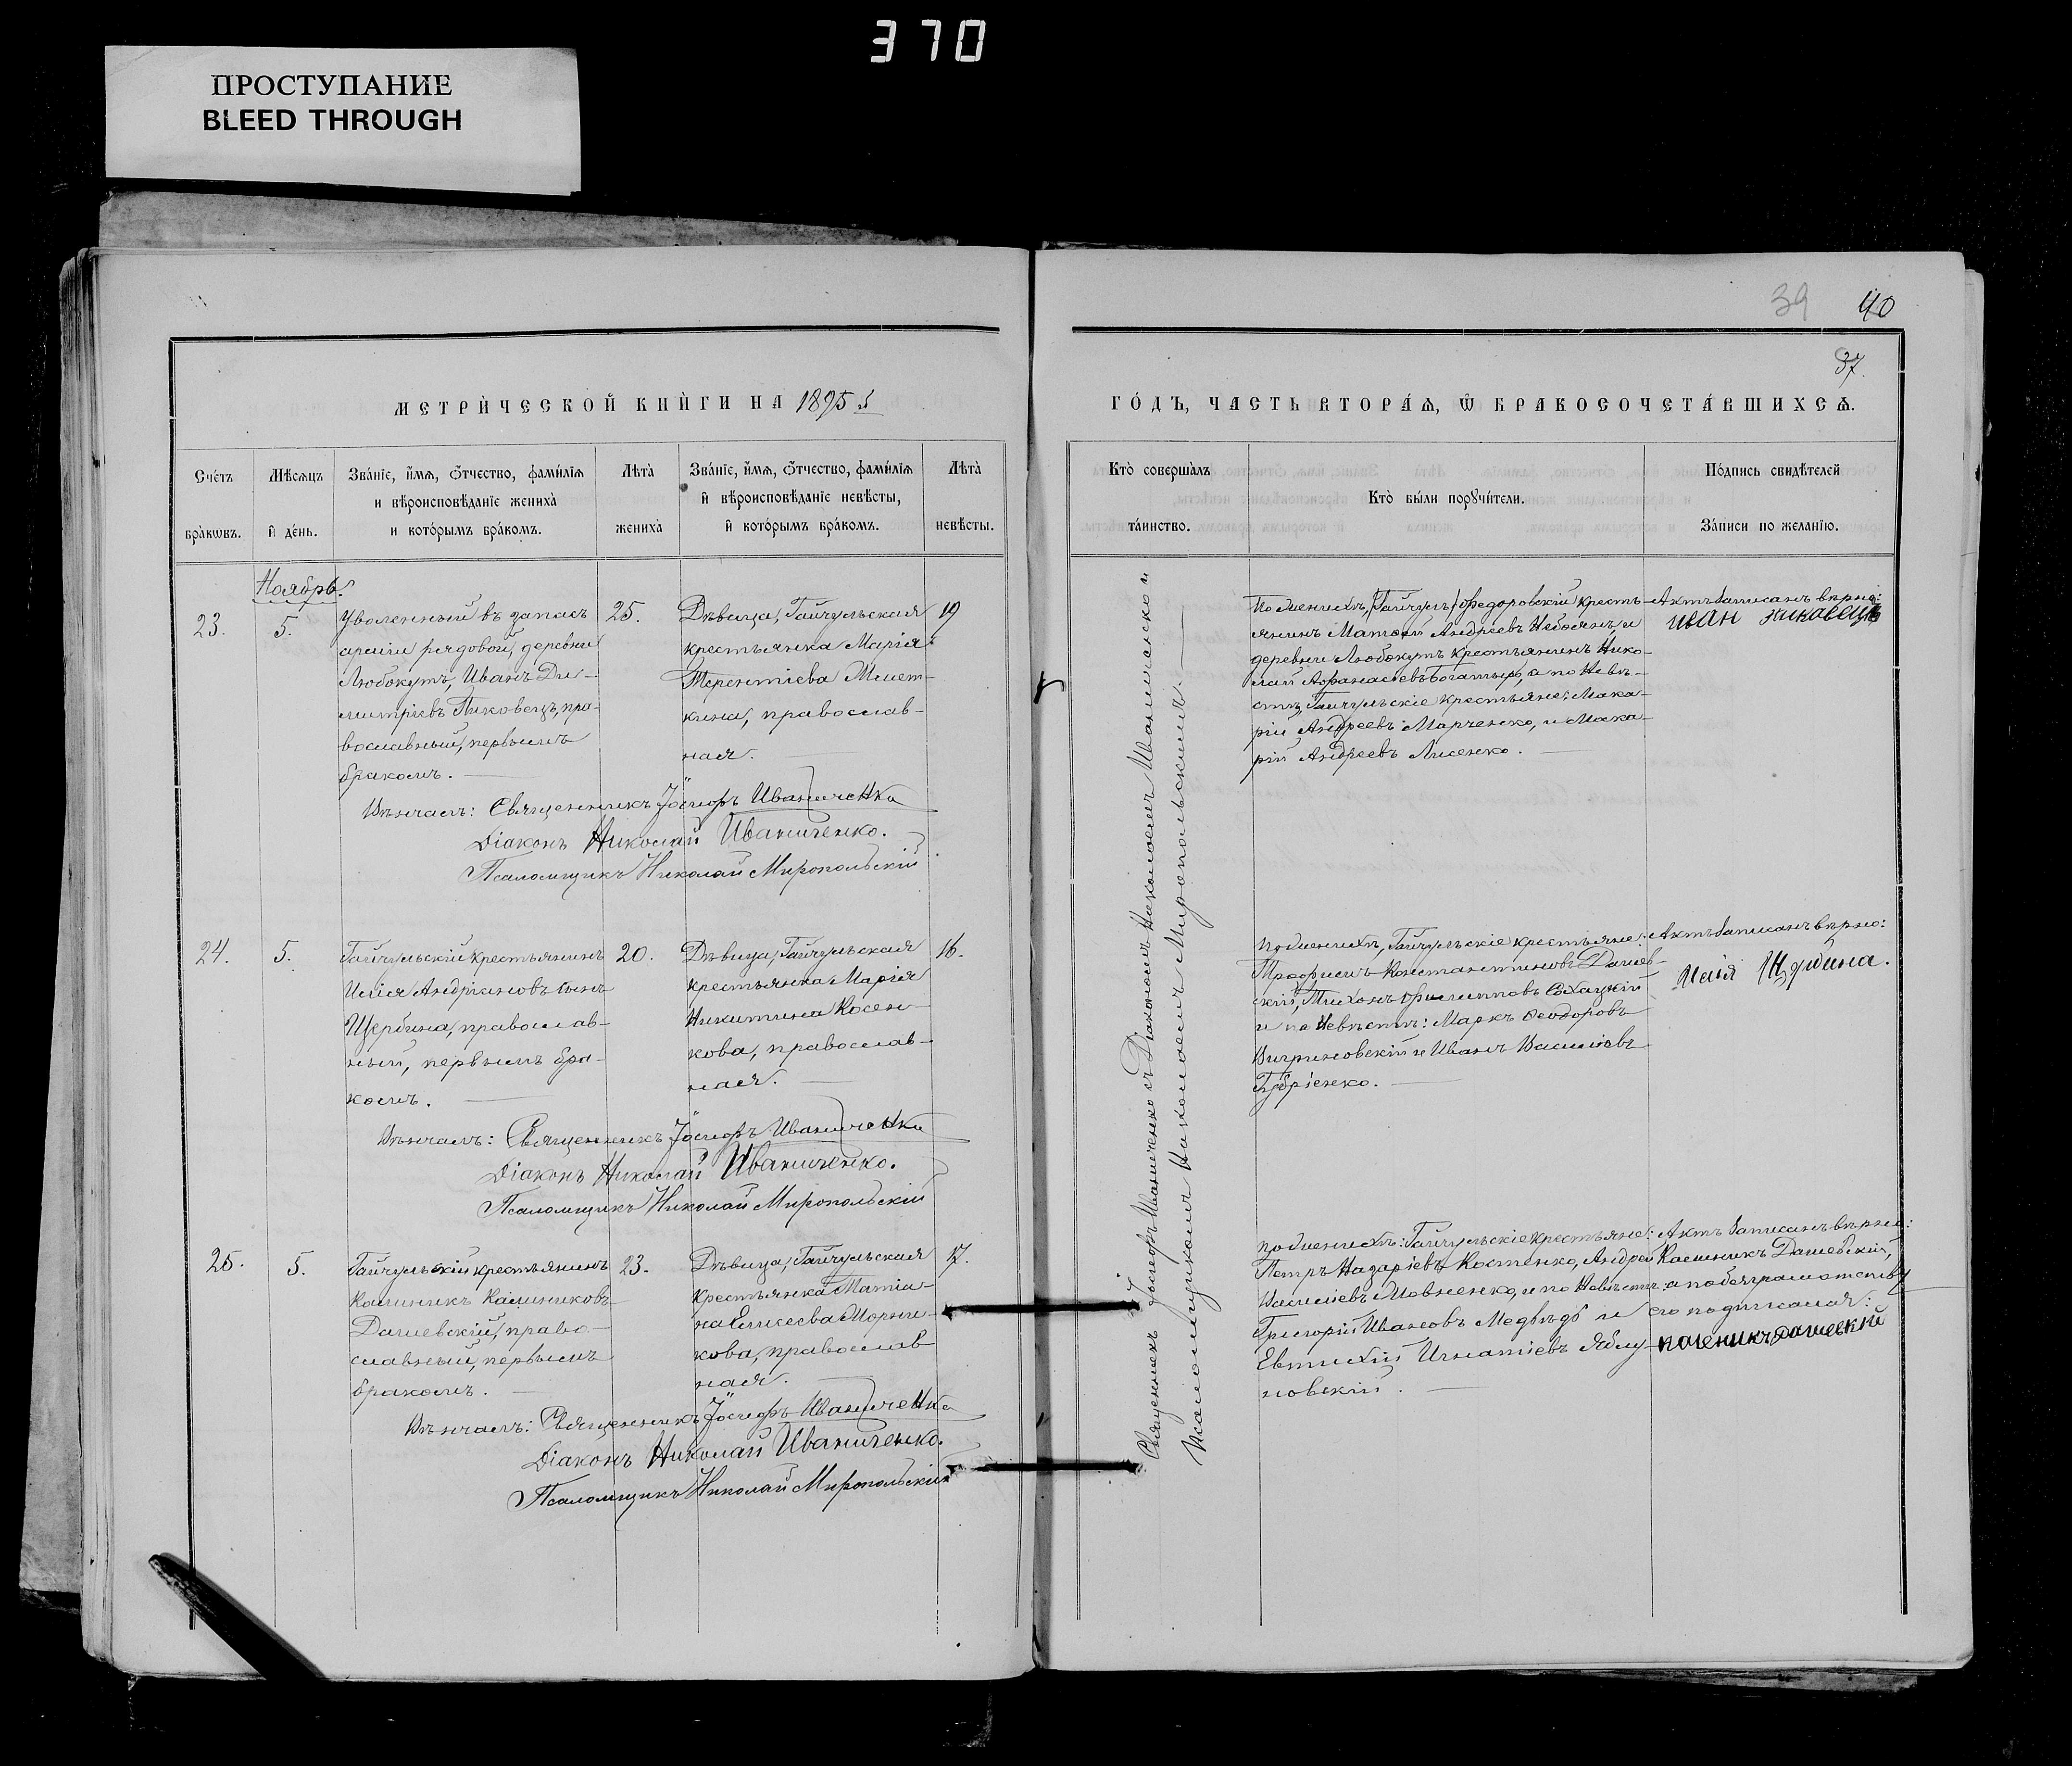 370
ПРОСТУПАНИЕ
BLEED THROUGH
39 40
37.
МЕТРИ́ЧЕСКОЙ КНИ́ГИ НА 1895 й
Сче́тъ бра́кѡвъ.
Мѣ́сѧцъ и҆ де́нь.
Зва́нїе, и҆́мѧ, ѻ҆́тчество, фами́лїѧ
и вѣроисповѣ́данїе жениха̀
и кото́рымъ бра́комъ.
Лѣта̀ жениха̀
Зва́нїе, и҆́мѧ, ѻ҆́тчество, фами́лїѧ
и҆ вѣроисповѣ́данїе невѣ́сты,
и҆ кото́рымъ бра́комъ.
Лѣта̀ невѣ́сты.
Ноябрь.
23.
5.
Уволенный въ запасъ
арміи рядовой, деревни
Любокутъ, Иванъ Ди-
митріевъ Пиковецъ, пра-
вославный, первымъ
бракомъ.
25.
Дѣвица, Гайчульская
крестьянка Марія
Терентіева
православ-
ная.
19
Вѣнчалъ: Священникъ Іосифъ Иваниченко
Діаконъ Николай Иваниченко.
Псаломщикъ Николай Миропольскій
24.
5.
Гайчульскій крестьянинъ
Илія Андріановъ сынъ
Щербина, православ-
ный, первымъ бра-
комъ.
20.
Дѣвица, Гайчульская
крестьянка Марія
Никитина Косен-
кова, православ-
ная.
16.
Вѣнчалъ: Священникъ Іосифъ Иваниченко
Діаконъ Николай Иваниченко.
Псаломщикъ Николай Миропольскій
25.
5.
Гайчульскій крестьянинъ
Калиникъ Калиниковъ
Дашевскій, право-
славный, первымъ
бракомъ.
23.
Дѣвица, Гайчульская
крестьянка
Елисеева
православ
ная.
17.
Вѣнчалъ: Священникъ Іосифъ Иваниченко
Діаконъ Николай Иваниченко.
Псаломщикъ Николай Миропольскій
ГО́ДЪ, ЧАСТЬ ВТОРА́Ѧ, Ѽ БРАКОСОЧЕТА́ВШИХСѦ.
Кто̀ соверша́лъ
та́инство.
Кто̀ бы́ли порꙋчи́тели.
По́дпись свидѣ́телей
За́писи по жела́нїю.
Священникъ Іосифъ Иваниченко съ Діакономъ Николаемъ Иваниченко и
Псаломщикомъ Николаемъ Миропольскимъ.
По женихѣ, /Гайчулъ/ Федоровскій кресть-
янинъ Матвѣй Андреевъ и
деревни Любокутъ крестьянинъ Нико-
лай Афанасьевъ Богатырь, а по Невѣ-
стѣ, Гайчульскіе крестьяне: Мака-
рій Андреевъ Марченко, и Мака-
рій Андреевъ Лисенко.
Актъ записанъ вѣрно:
Иван Пиковець
По женихѣ, Гайчульскіе крестьяне:
Трофимъ Константиновъ Дашев-
скій, Тихонъ Филипповъ Сохацкій
и по Невѣстѣ: Маркъ Ѳеодоровъ
и Иванъ Васильевъ
Актъ записанъ вѣрно:
Илія Щербина.
По женихѣ: Гайчульскіе крестьяне:
Петръ Назаріевъ Костенко, Андрей
Васильевъ Мовченко, и по Невѣстѣ:
Григорій Ивановъ Медвѣдь и
Евтихій Игнатіевъ Яблу-
новскій.
Актъ записанъ вѣрно:
Калиникъ Дашевскій,
а по безграмотству
его подписался:
Каленикъ Дашевский